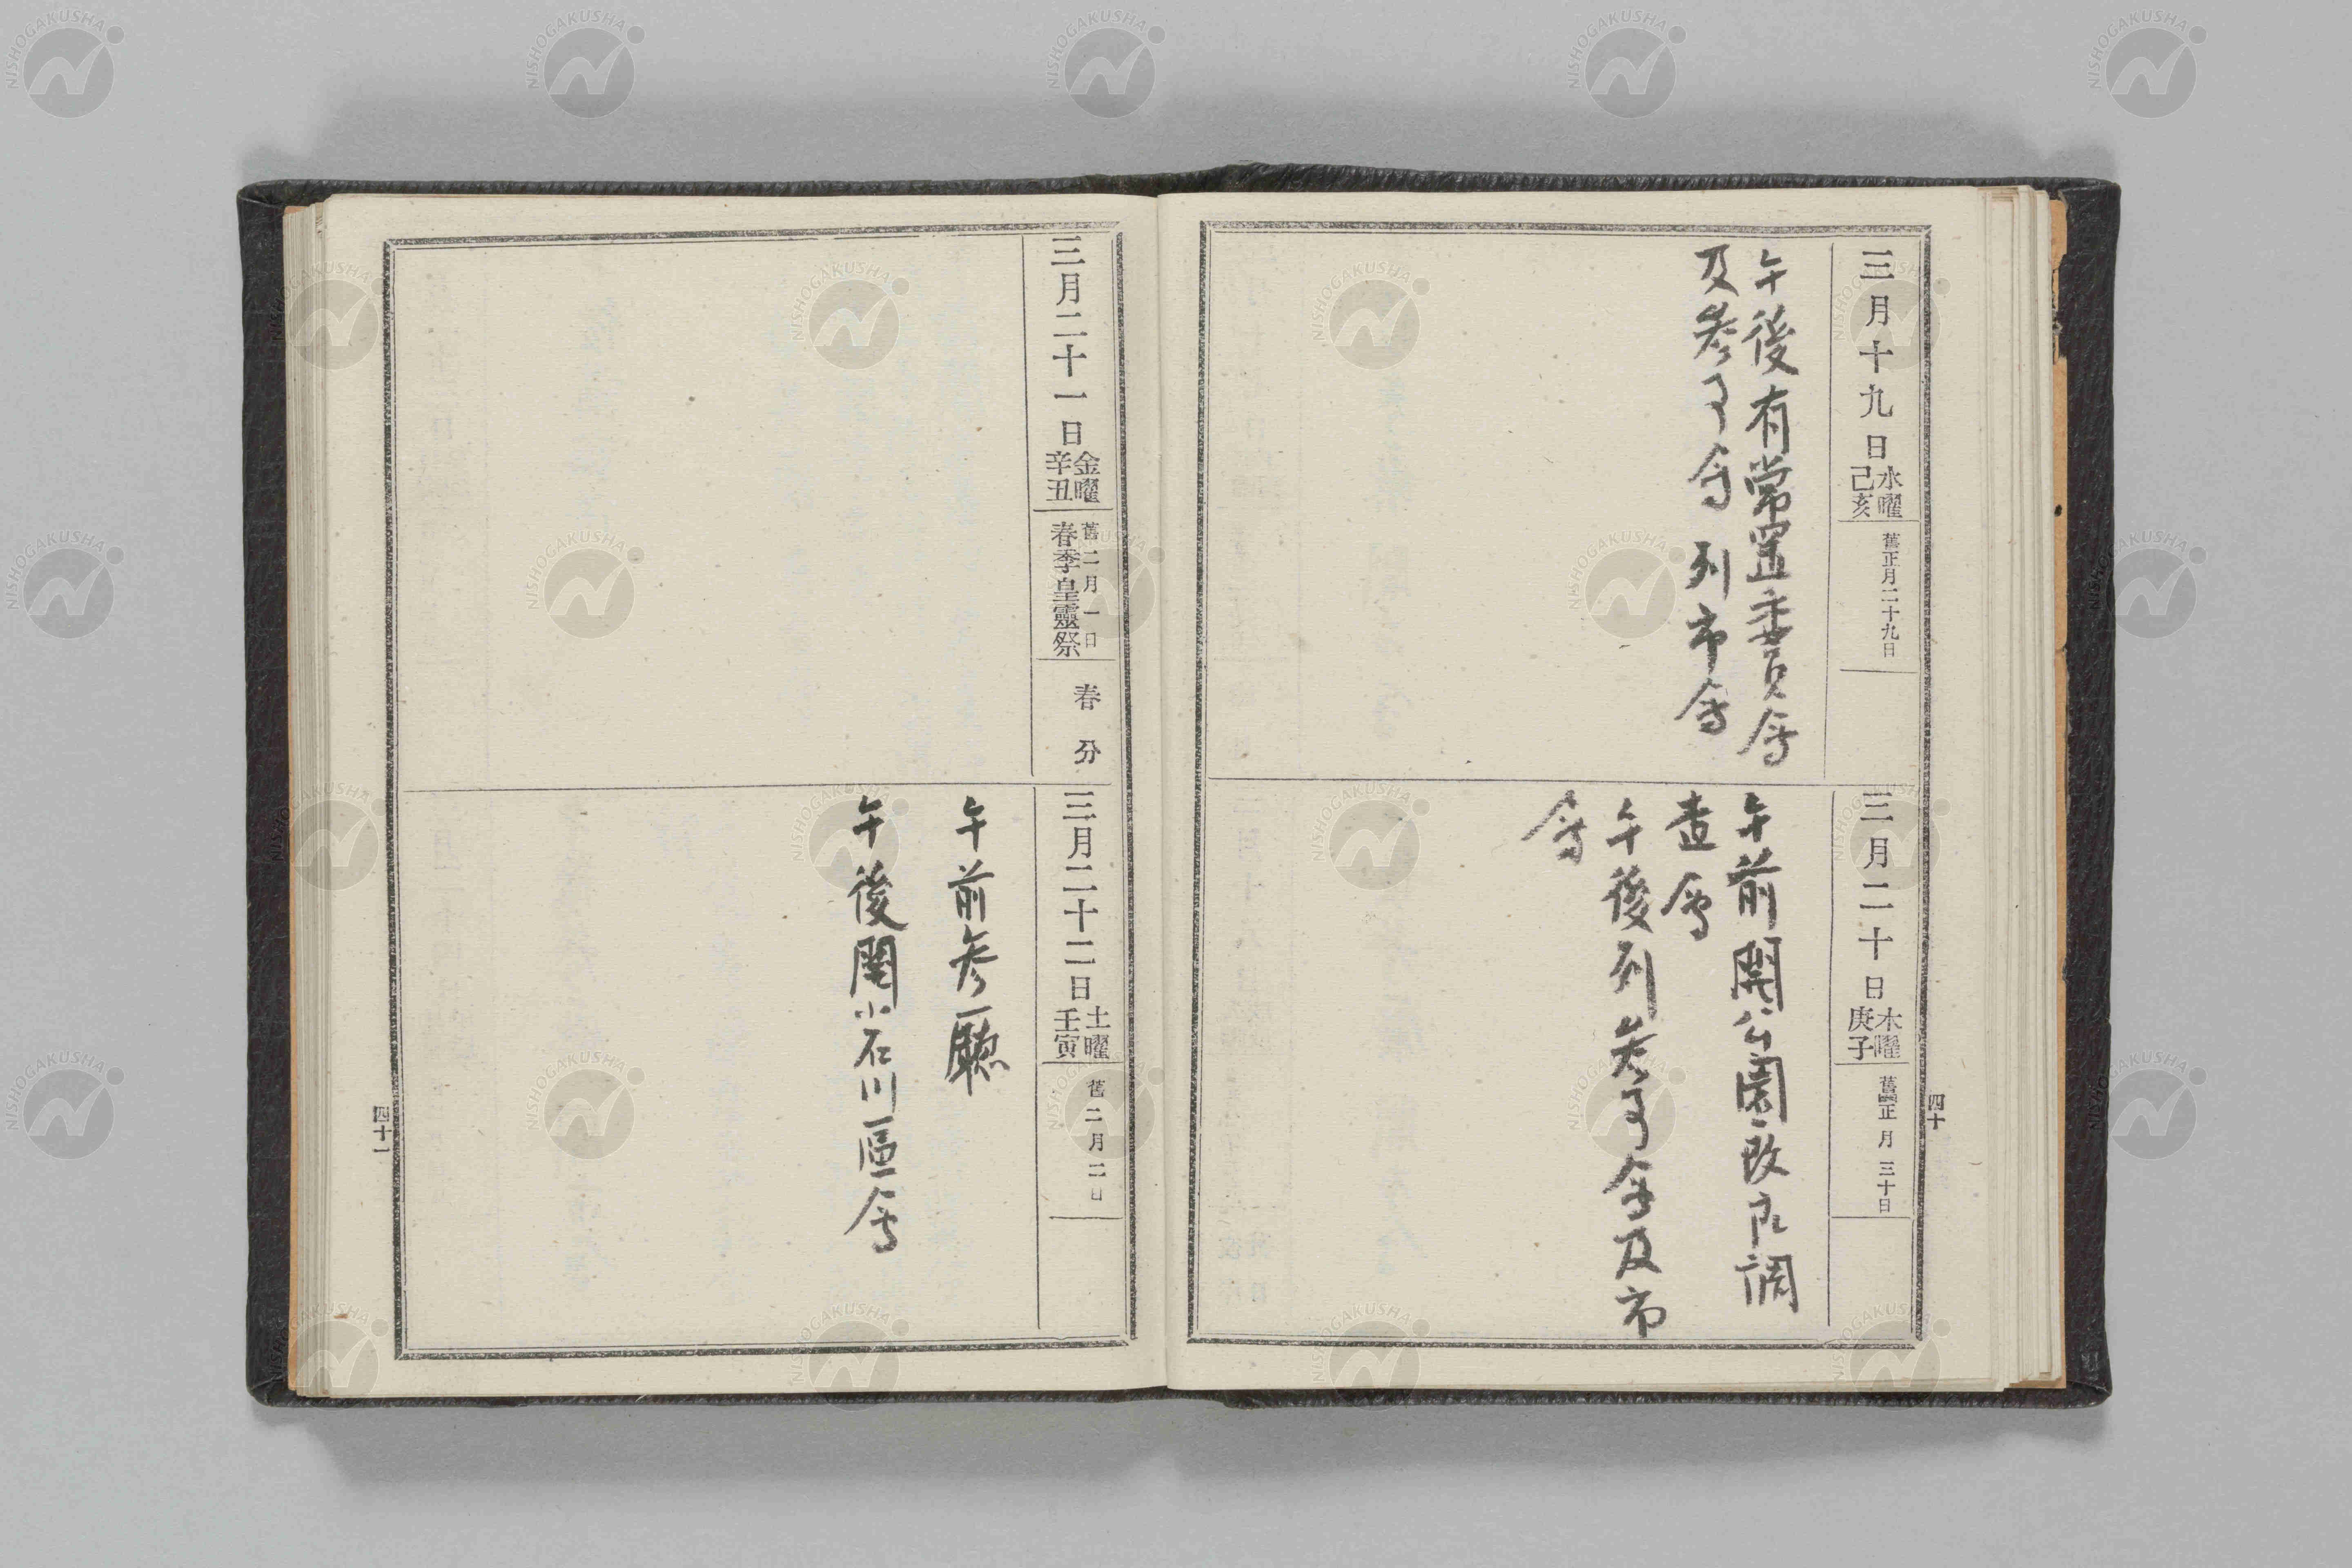 三月十九日 水曜 己亥 舊正月二十九日
午後有常置委員會
及參事會列市會
三月二十日 木曜 庚子 舊正月三十日
午前開公園改良調
査會
午後列參事會及市
會
四十
三月二十一日 金曜 辛丑 舊二月一日 春季皇靈祭 春分
三月二十二日 土曜 壬寅 舊二月二日
午前參廳
午後開小石川區會
四十一
NISHOGAKUSHA